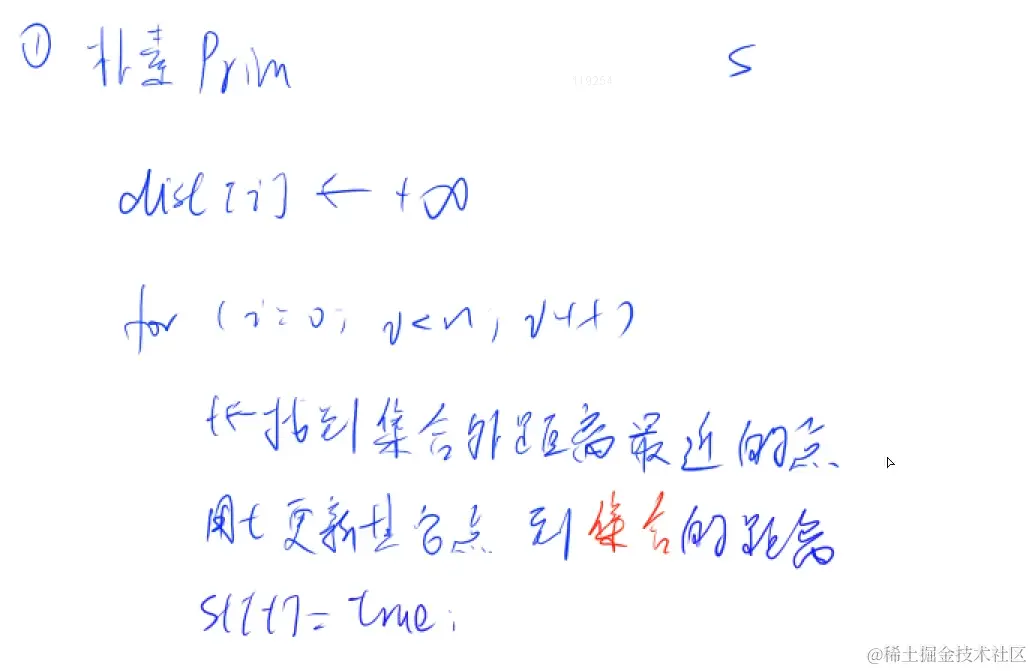 ① 朴素Prim S
119264
dist[i] ← +∞
for (i=0; i<n; i++)
t←找到集合外距离最近的点
用t更新其它点 到集合的距离
st[t]=true;
@稀土掘金技术社区